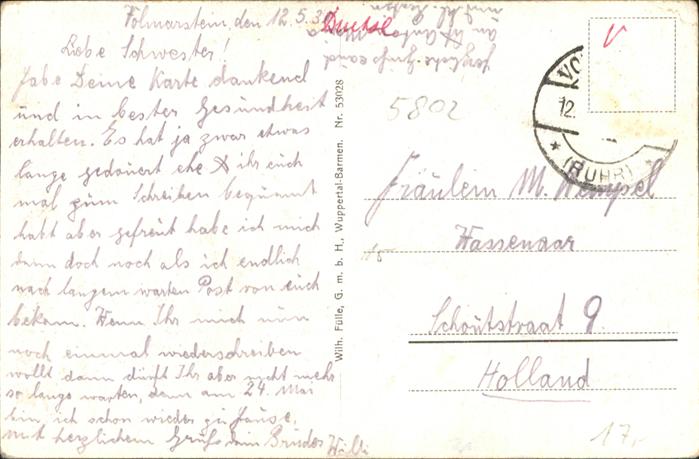 Volmarstein den 12.5.3
Liebe Schwester!
Habe Deine Karte dankend
und in bester Gesundheit
erhalten. Es hat ja zwar etwas
lange gedauert ehe ihr euch
mal zum Schreiben bequemt
habt aber gefreut habe ich mich
dann doch noch als ich endlich
nach langem warten Post von euch
bekam. Wenn Ihr mich nun
noch einmal wiederschreiben
wollt dann dürft Ihr aber nicht mehr
so lange warten, denn am 24. Mai
bin ich schon wieder zu Hause.
Mit herzlichem Gruß dein Bruder Willi
Herzliche Grüße auch
an
und
Wilh. Fülle, G. m. b. H., Wuppertal-Barmen. Nr. 53028
5802
V
VO
12.
(RUHR)
Fräulein M. Wempel
Wassenaar
Schoutstraat 9
Holland
17,-